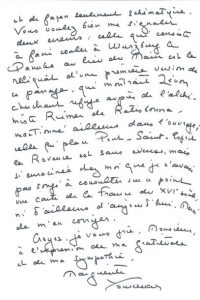 et de façon seulement schématique.
Vous voulez bien me signaler
deux erreurs : celle qui consiste
à faire couler à Wurzburg le
Danube au lieu du Main est le
reliquat d'une première version de
ce passage, qui montrait Zénon
cherchant refuge auprès de l'alchi-
miste Riemer de Ratisbonne,
mentionné ailleurs dans l'ouvrage ;
celle qui place Pont-Saint-Esprit
en Provence est sans excuses, mais
si enracinée chez moi que je n'avais
pas songé à consulter sur ce point
une carte de la France du XVIe siècle,
ni d'ailleurs d'aujourd'hui. Merci
de m'en corriger.
Croyez, je vous prie, Monsieur,
à l'expression de ma gratitude
et de ma sympathie.
Marguerite
Yourcenar